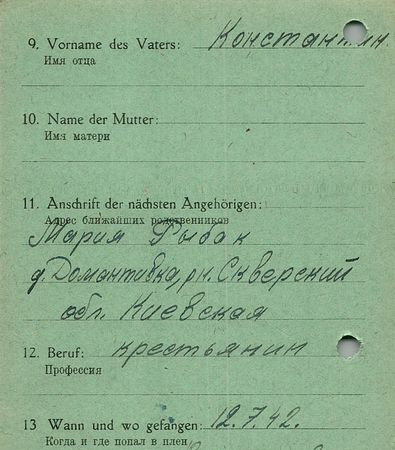 9. Vorname des Vaters: Константин.
Имя отца
10. Name der Mutter:
Имя матери
11. Anschrift der nächsten Angehörigen:
Адрес ближайших родственников
Мария Рыбак
д. Домантивка, рн. Скверский
обл. Киевская
12. Beruf: крестьянин
Профессия
13 Wann und wo gefangen: 12.7.42.
Когда и где попал в плен